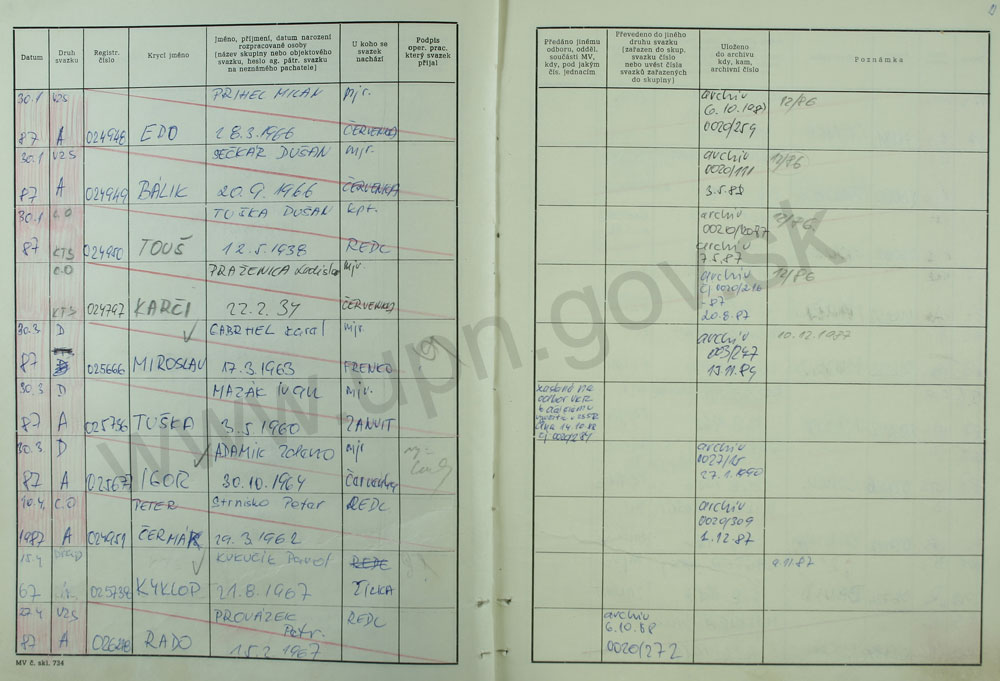 Datum
Druh svazku
Registr. číslo
Krycí jméno
Jméno, příjmení, datum narození rozpracované osoby (název skupiny nebo objektového svazku, heslo ag. pátr. svazku na neznámého pachatele)
U koho se svazek nachází
Podpis oper. prac. který svazek přijal
Předáno jinému odboru, odděl. součásti MV, kdy, pod jakým čís. jednacím
Převedeno do jiného druhu svazku (zařazen do skup. svazku číslo nebo uvést čísla svazků zařazených do skupiny)
Uloženo do archivu kdy, kam, archivní číslo
Poznámka
30.1 VZS PRIHEL MILAN mjr. archiv 12/86
6.10.198
87 A 024948 EDO 28.3.1966 ČERVENKA 0020/259
30.1 VZS SEČKÁR DUŠAN mjr. archiv 12/86
0020/111
87 A 024949 BÁLIK 20.9.1966 ČERVENKA 3.5.89
30.1 LO TUŠKA DUŠAN kpt. archiv 12/86
0020/2077
87 KTS 024950 TOUŠ 12.5.1938 REDL archiv
7.5.87
C.O PRAŽENICA Ladislav mjr archiv 12/86
čj 0020/216
-87
KTS 024747 KARČI 22.2.34 ČERVENKA 20.8.87
30.3 D GABRHEL Karol mjr. archiv 10.12.1987
003/247
87 025666 MIROSLAV 17.3.1963 FRENKO 13.11.89
30.3 D MAZÁK mjr. zaslané na
odbor
87 A 025736 TUŠKA 3.5.1960 14.10.88
30.3 D ADAMÍK mjr archiv
0027/15
87 A 025677 IGOR 30.10.1964 Červenka 27.1.1990
10.4. C.O PETER Strnisko Peter REDL archiv
0020/309
1987 A 024951 ČERMÁK 29.3.1962 1.12.87
15.4 KUKUČIK Pavol REDL a 1187
67 025739 KYKLOP 21.8.1967 ŽIŽKA
27.4 VZS PROVÁZEK REDL archiv
Petr. 6.10.88
87 A RADO 15.2 1967 0020/272
MV č. skl. 734
www.upn.gov.sk